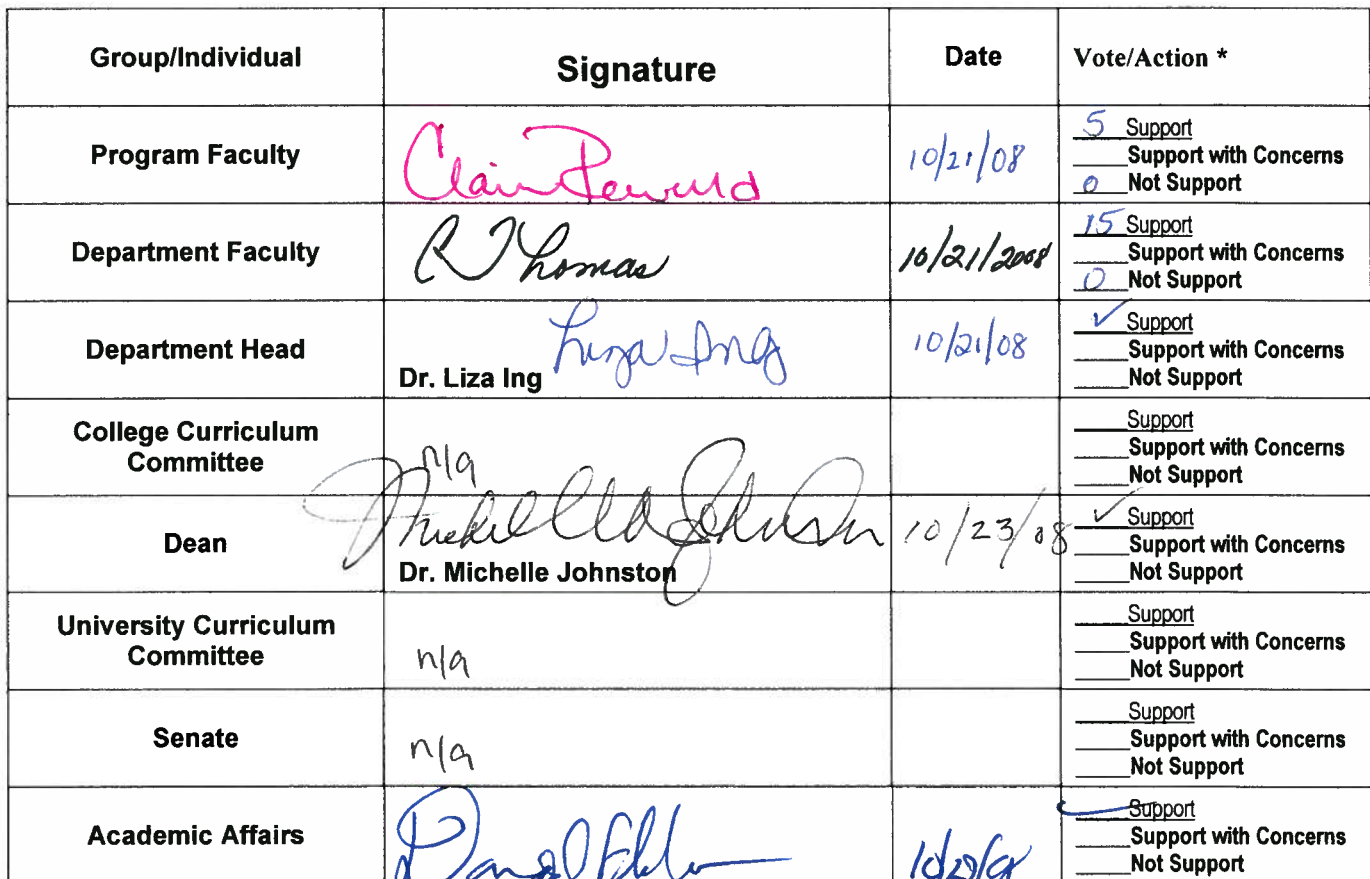 Group/Individual Signature Date Vote/Action *
Program Faculty 10/21/08
5 Support
Support with Concerns
0 Not Support
Department Faculty R Thomas 10/21/2008
15 Support
Support with Concerns
0 Not Support
Department Head Liza Ing 10/21/08
Dr. Liza Ing
✓ Support
Support with Concerns
Not Support
College Curriculum
Committee
n/a
Support
Support with Concerns
Not Support
Dean Johnston 10/23/08
Dr. Michelle Johnston
✓ Support
Support with Concerns
Not Support
University Curriculum
Committee
n/a
Support
Support with Concerns
Not Support
Senate n/a
Support
Support with Concerns
Not Support
Academic Affairs
Support
Support with Concerns
Not Support